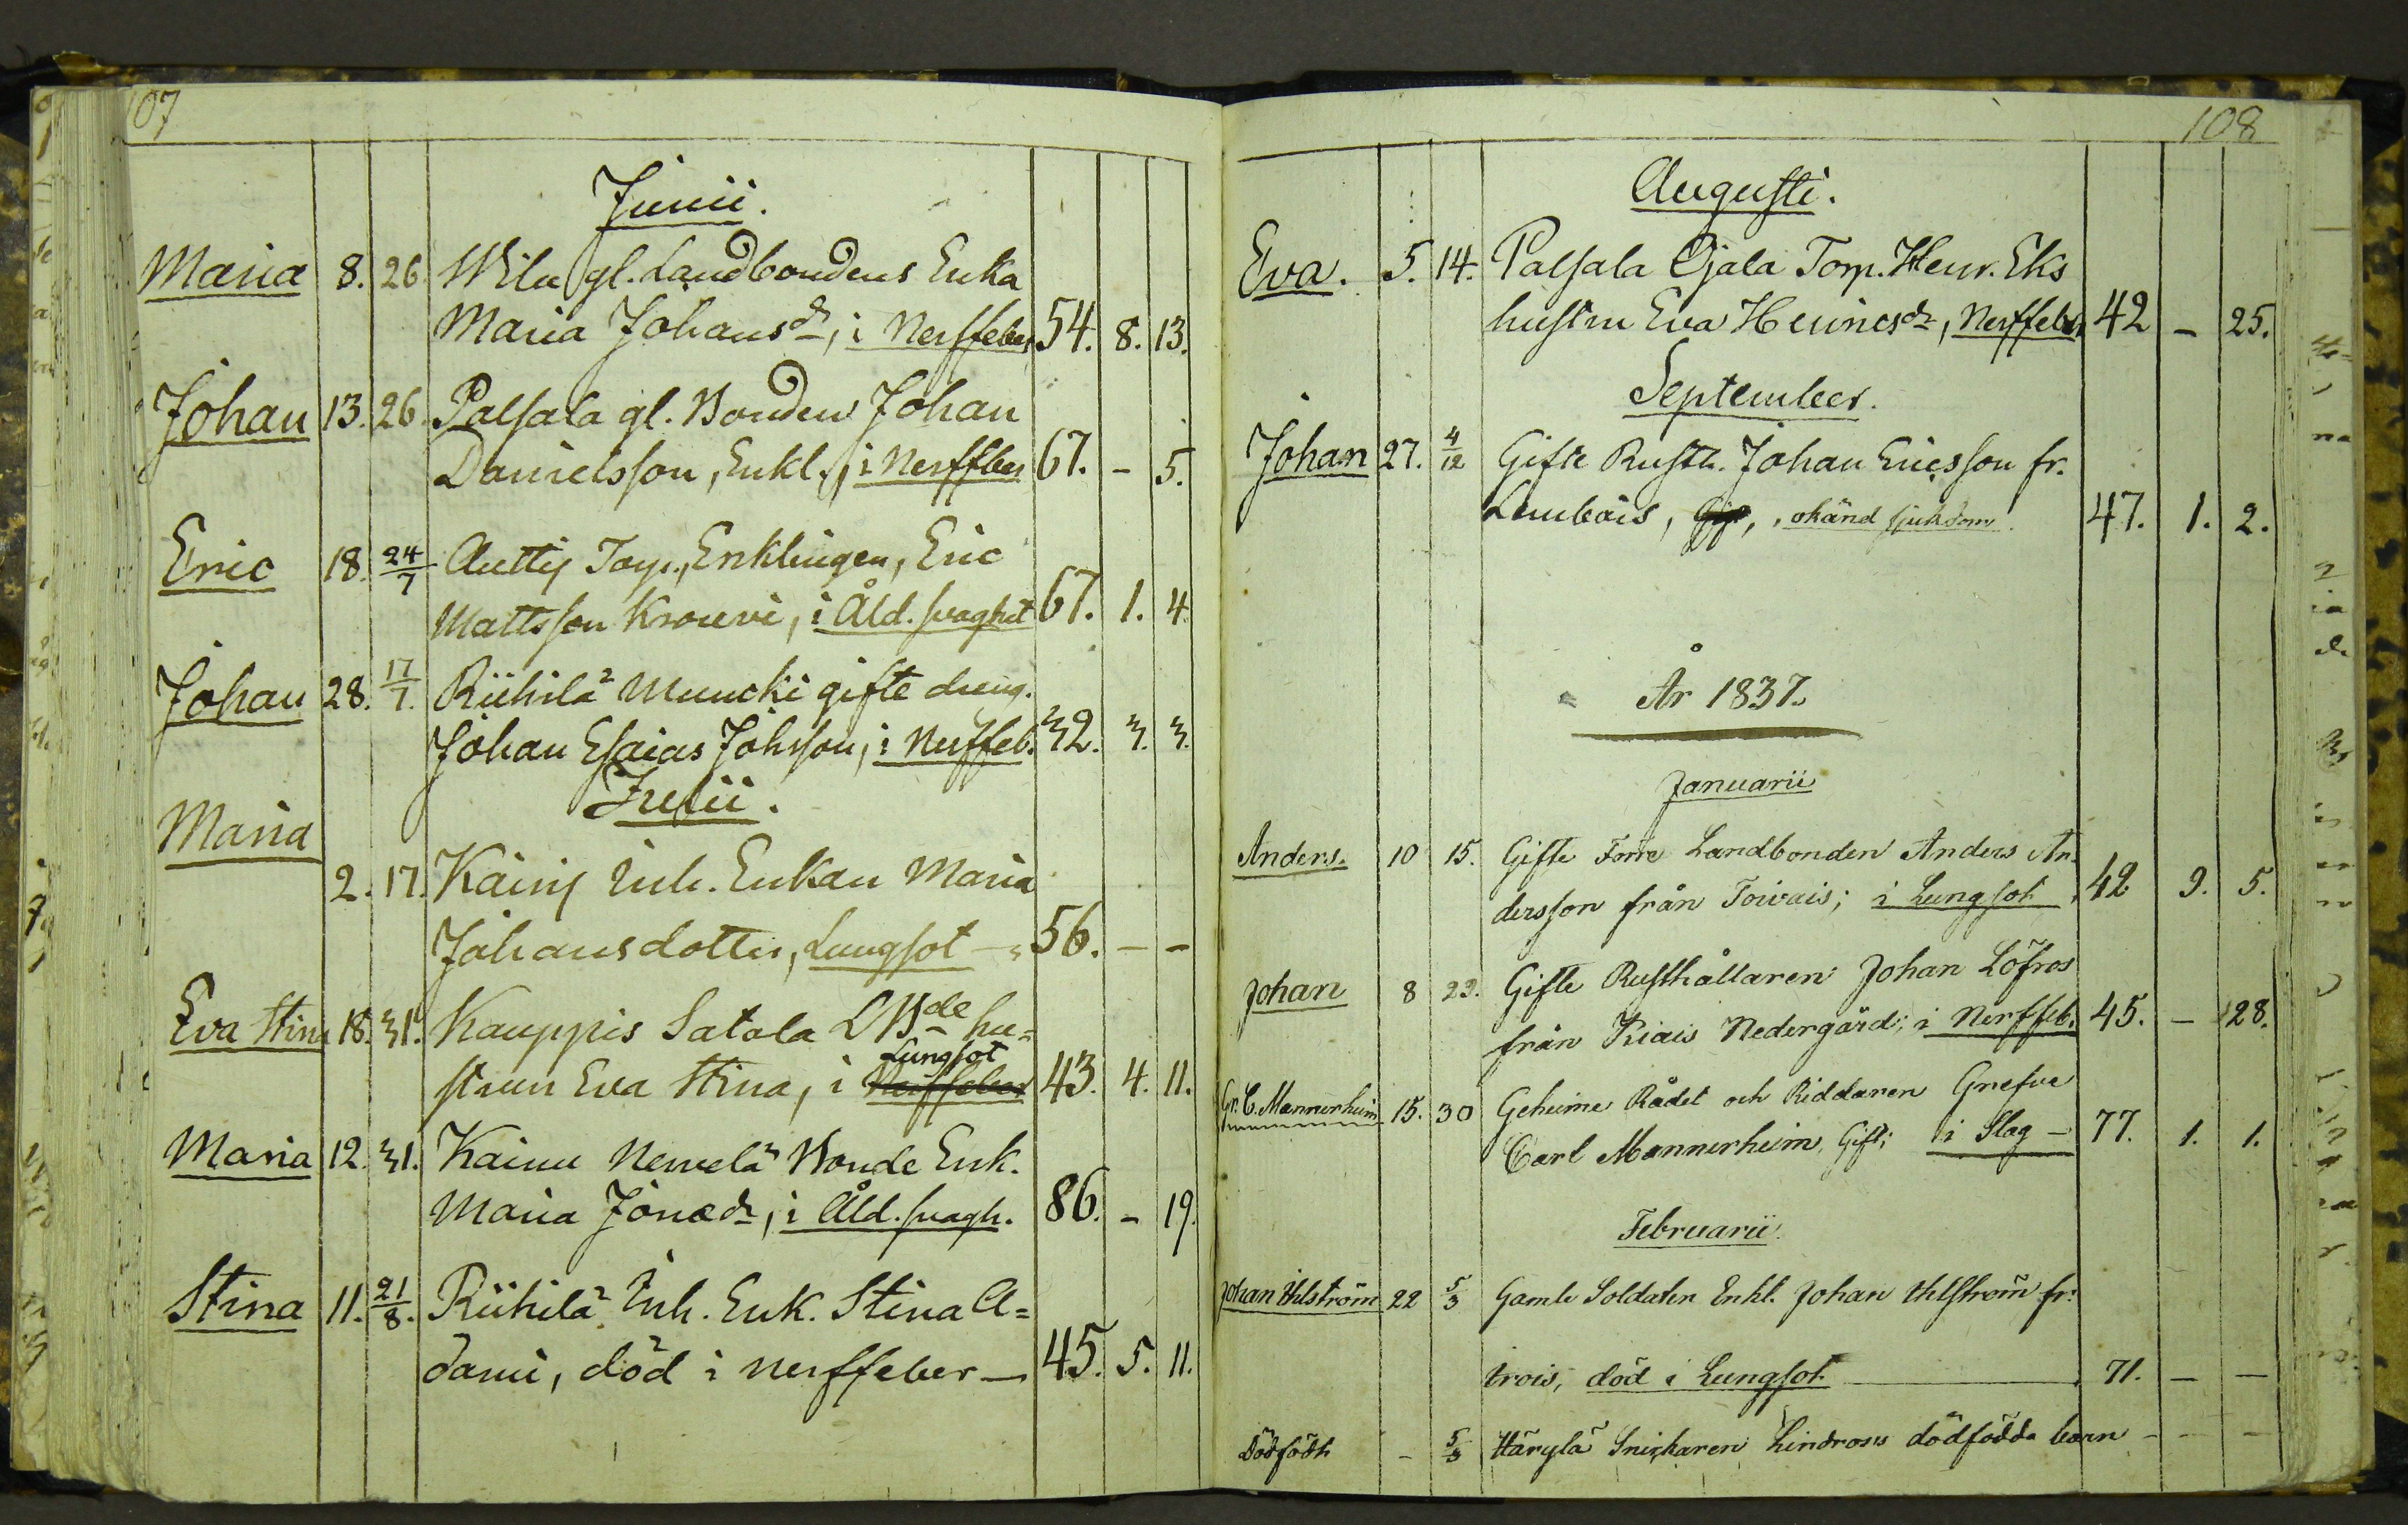 107
Junii.
Maria 8. 26 Wilu gl. Landbondens Enka
Maria Johansdr, i Nerffeber 54. 8. 13.
Johan 13. 26. Palsala gl. Bonden Johan
Danielsson, Enkl., i Nerffber 67. - 5.
Eric 18. 24/7 Anttij Torp., Enklingen, Eric
Mattsson Krouvi, i Åld. svaghet 67. 1. 4.
Johan 28. 17/7. Riihilä Muncki gifte dreng.
Johan Esaias Johsson, i Nerffeb. 32. 3. 3.
Julii.
Maria
2. 17. Kainij Inh. Enkan Maria
Johansdotter, Lungsot - 56. - -
Eva Stina 18. 31. Kauppis Satola LBde hu=
Lungsot
strun Eva Stina, i Nerffeber 43. 4. 11.
Maria 12. 31. Kainu Nervelä Bonde Enk.
Maria Jonædr, i Åld. svagh. 86. - 19.
Stina 11. 21/8. Riihilä Inh. Enk. Stina A=
dami, död i nerffeber - 45. 5. 11.
108
Augusti.
Eva. 5. 14. Palsala Ojala Torp. Henr. Eks
hustru Eva Henricsdr, Nerffeber 42 - 25.
September.
Johan 27. 4/12 Gifte Rusth. Johan Ericsson fr.
Lembois, Gift, , okänd sjukdom. 47. 1. 2.
År 1837.
Januarii
Anders. 10 15. Gifte Förre Landbonden Anders An=
dersson från Toivais; i Lungsot 42 9. 5.
Johan 8 22. Gifte Rusthållaren Johan Löfros
från Kiais Nedergård; i Nerffeb. 45. - 28.
Gr. C. Mannerheim 15. 30 Geheime Rådet och Riddaren Grefve
Carl Mannerheim, Gift; i Slag - 77. 1. 1.
Februarii.
Johan Uhlström 22 5/3 Gamle Soldaten Enkl. Johan Uhlström fr:
trois, död i Lungsot 71. - -
Dödfödt - 5/3 Härylä Snickaren Lindroos dödfödda barn - - -